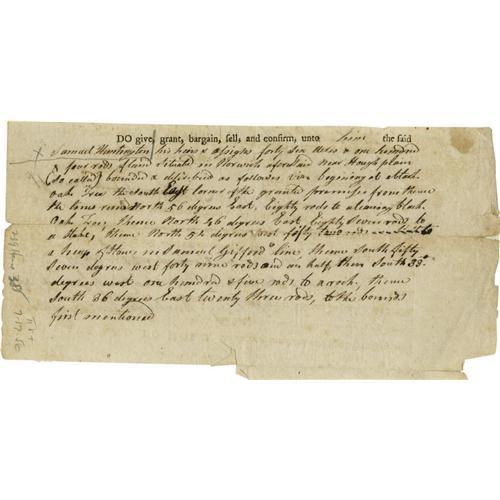 DO give, grant, bargain, sell, and confirm, unto him the said
Samuel Huntington his heirs & assigns forty six acres & one hundred
& four rods of land situated in Norwich aforesaid near Hough plain
(so called) bounded & described as follows viz begining at a black
Oak Tree the South East corner of the granted premises from thence
the line runs North 56 degrees East, Eighty rods to a leaning black
Oak Tree, thence North 46 degrees East Eighty Seven rods to
a Stake, thence North 52 degrees west fifty two rods to
a heap of Stones in Samuel Gifford's line, thence South fifty
Seven degrees west forty nine rods and an half, then South 33
degrees west one hundred & five rods to a rock, thence
South 36 degrees East twenty three rods, to the bounds
first mentioned
7-17-56